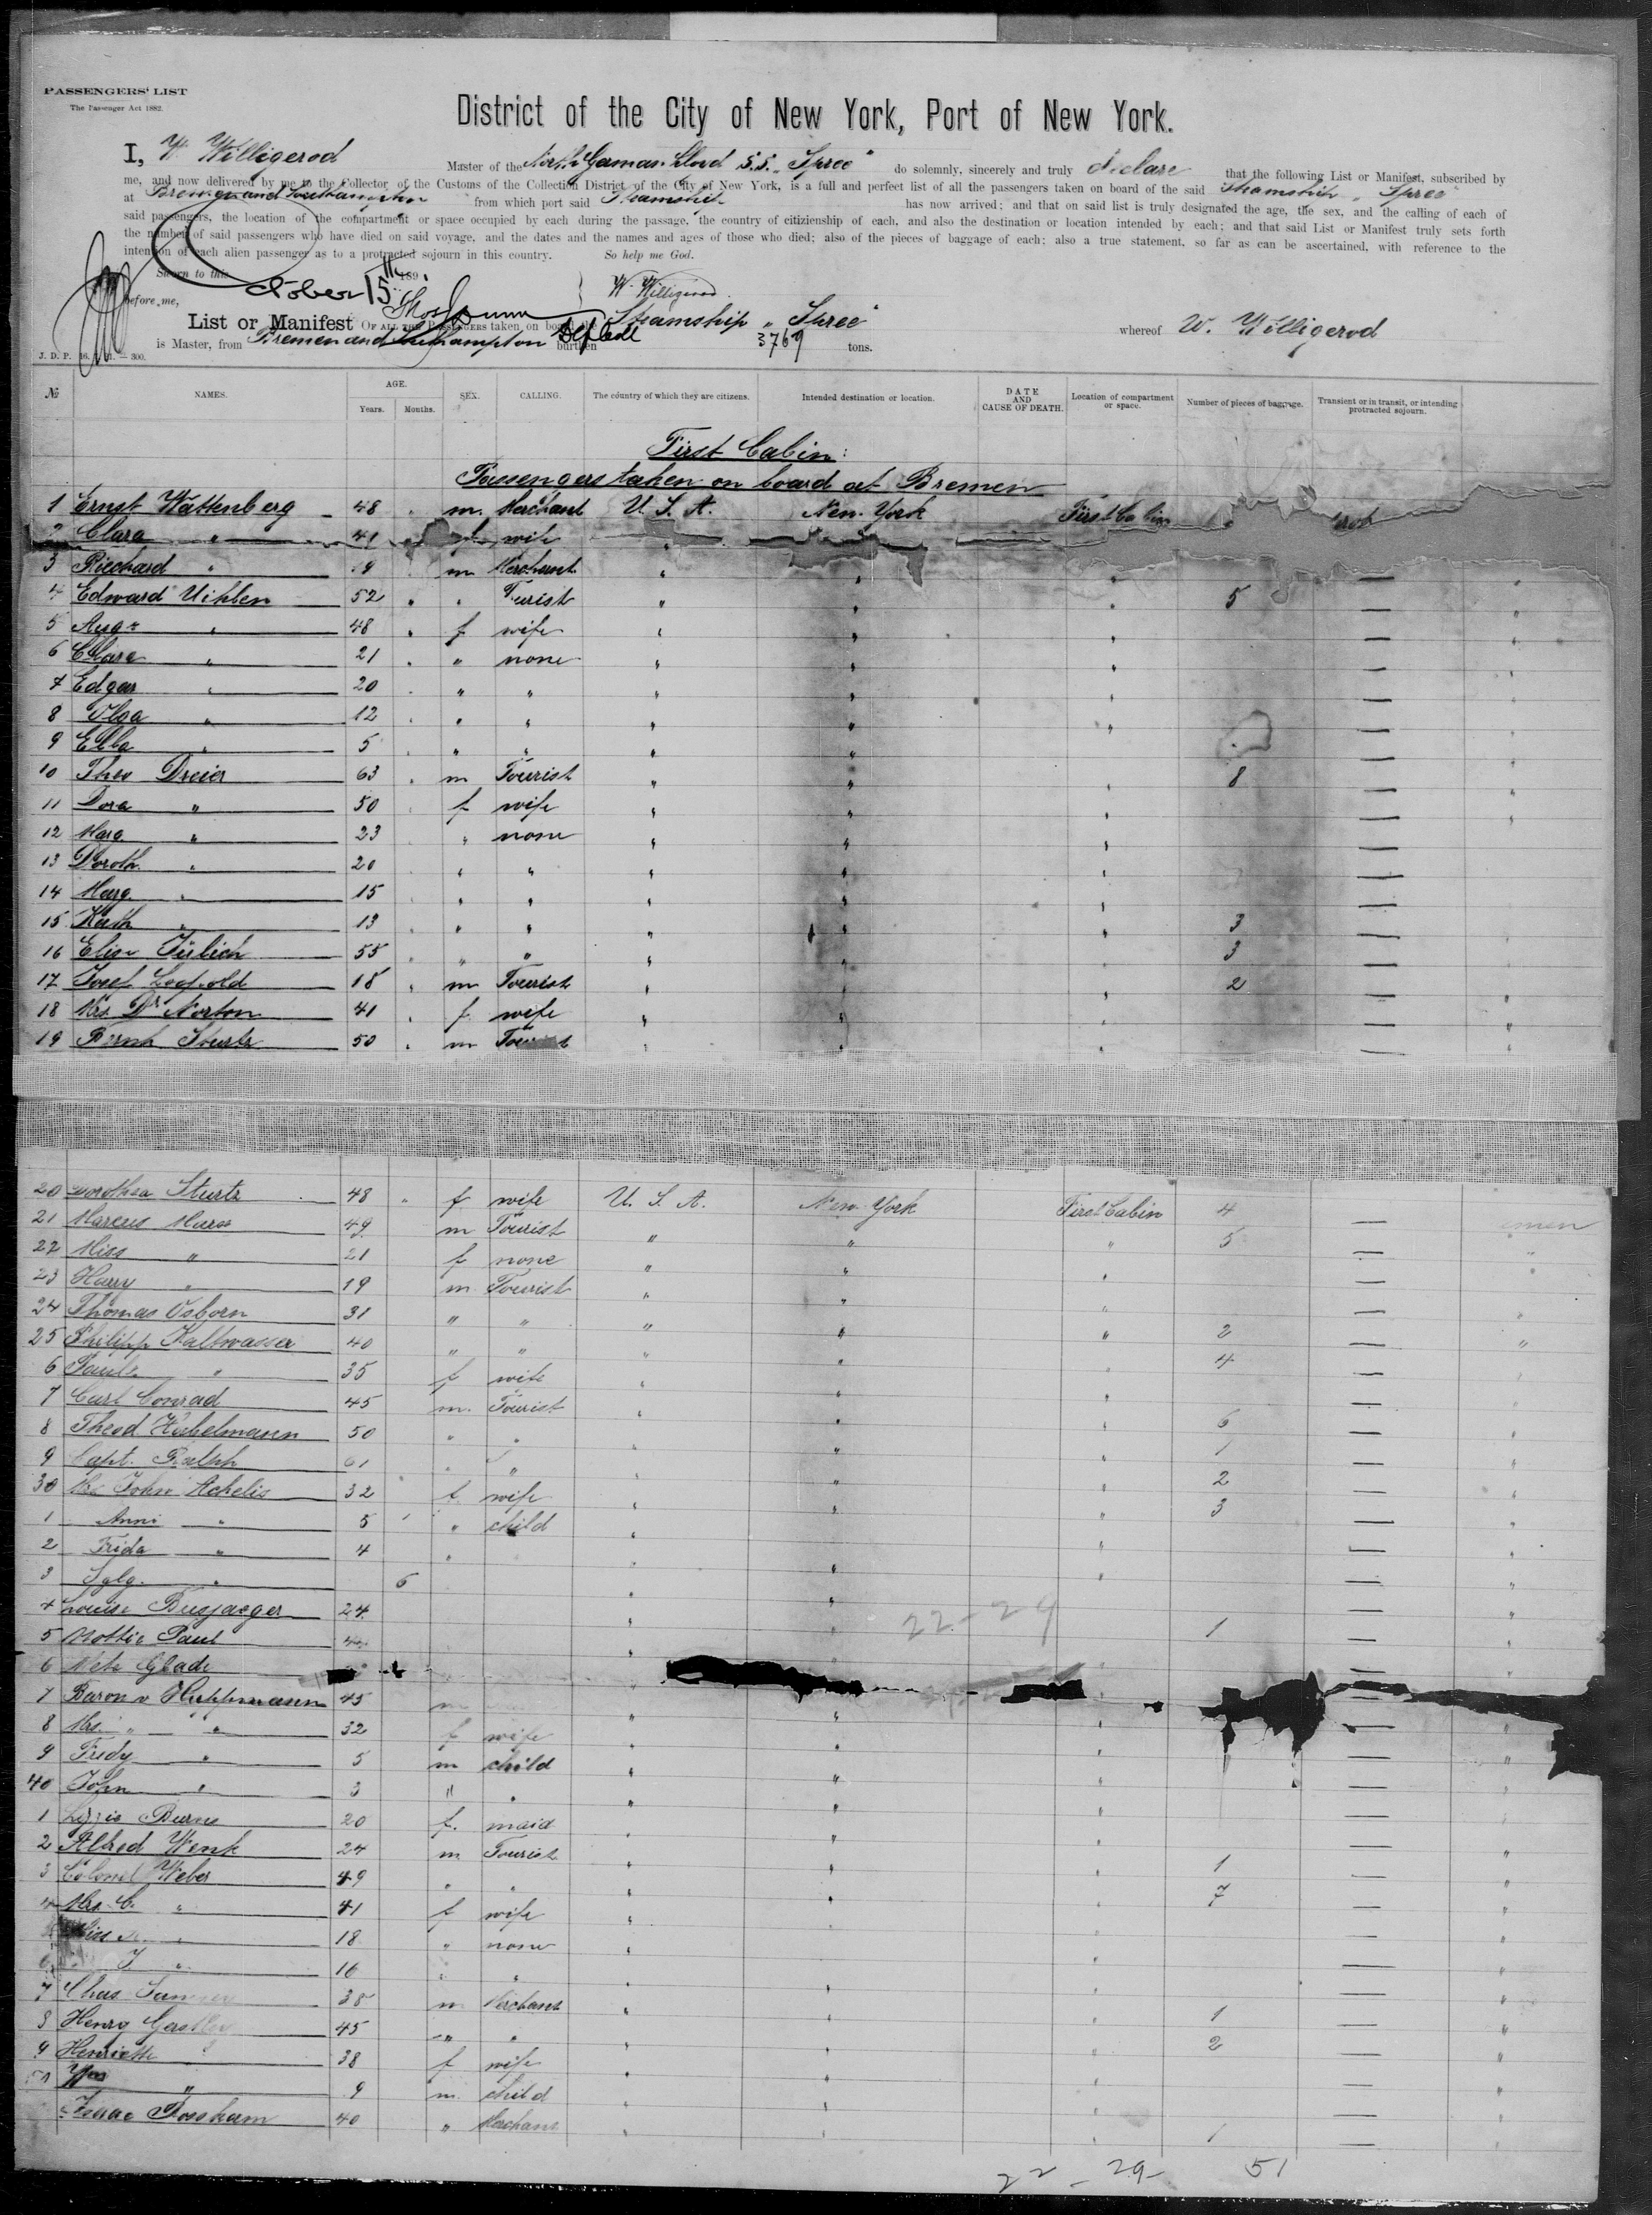 PASSENGERS' LIST
The Passenger Act 1882.
District of the City of New York, Port of New York.
I, W. Willigerod Master of the North German Lloyd S.S. „Spree" do solemnly, sincerely and truly declare that the following List or Manifest, subscribed by
me, and now delivered by me to the Collector of the Customs of the Collection District of the City of New York, is a full and perfect list of all the passengers taken on board of the said Steamship „Spree"
at Bremen and Southampton from which port said Steamship has now arrived; and that on said list is truly designated the age, the sex, and the calling of each of
said passengers, the location of the compartment or space occupied by each during the passage, the country of citizienship of each, and also the destination or location intended by each; and that said List or Manifest truly sets forth
the number of said passengers who have died on said voyage, and the dates and the names and ages of those who died; also of the pieces of baggage of each; also a true statement, so far as can be ascertained, with reference to the
intention of each alien passenger as to a protracted sojourn in this country. So help me God.
Sworn to this October 15th 189
before me, W. Willigerod
List or Manifest OF ALL THE PASSENGERS taken on board the Steamship „Spree" whereof W. Willigerod
is Master, from Bremen and Southampton burthen 3769 tons.
J. D. P. 300.
№ NAMES. AGE. Years. Months. SEX. CALLING. The country of which they are citizens. Intended destination or location. DATE AND CAUSE OF DEATH. Location of compartment or space. Number of pieces of baggage. Transient or in transit, or intending protracted sojourn.
First Cabin:
Passengers taken on board at Bremen
1 Ernst Wattenberg 48 m. Merchant U. S. A. New-York First Cabin
2 Clara " 41 f. wife
3 Riechard " 19 m Merchant "
4 Edward Uihlen 52 " Tourist " 5
5 Aug. " 48 f wife "
6 Clara " 21 " none "
7 Edgar " 20 " " "
8 Olga " 12 " " "
9 Ella " 5 " " "
10 Theo Dreier 63 m Tourist " 8
11 Dora " 50 f wife "
12 Marg. " 23 " none "
13 Doroth. " 20 " " "
14 Marg. " 15 " " "
15 Kath " 13 " " " 3
16 Elise 55 " " " 3
17 Josef Leopold 18 m Tourist " 2
18 Mrs. Dr Norton 41 f wife "
19 Bernh Sturtz 50 m Tourist "
20 Dorothea Sturtz 48 f wife U. S. A. New-York First Cabin 4
21 Marcus 49 m Tourist " 5
22 Miss " 21 f none "
23 Harry " 19 m Tourist "
24 Thomas Osborn 31 " " " 2
25 Philipp Kaltwasser 40 " " " 4
6 " 35 f wife "
7 Curt Conrad 45 m. Tourist " 6
8 Theod 50 " " " 1
9 Capt. 61 " " " 2
30 Mrs John Achelis 32 f. wife " 3
1 Anni " 5 " child "
2 Frida " 4 " "
3 Sglg. " 6 "
4 Louise Busjaeger 24 " 1
5 Paul "
6 Meta Glade
7 Baron v Huppmann 45 m "
8 Mrs. " " 32 f wife "
9 Fredy " 5 m child "
40 John " 3 " " "
1 Lizzie Burns 20 f. maid "
2 Alfred Wenk 24 m Tourist " 1
3 Colonel Weber 49 " " " 7
4 Mrs. C. " 41 f wife "
Miss " 18 " none "
6 " 16 " " "
7 Chas 38 m Merchant " 1
8 Henry 45 " " " 2
9 Henriette " 38 f wife "
50 " 9 m. child "
Isaac 40 " Merchant " 1
22-29
22-29- 51